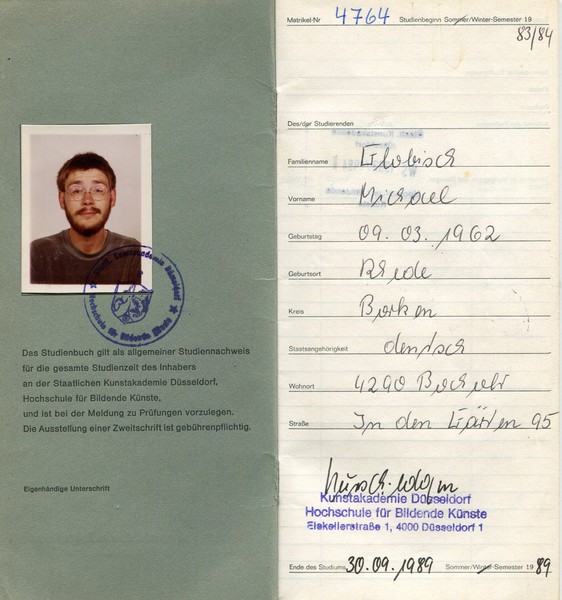 STAATL. Kunstakademie Düsseldorf
Hochschule für Bildende Künste
Das Studienbuch gilt als allgemeiner Studiennachweis
für die gesamte Studienzeit des Inhabers
an der Staatlichen Kunstakademie Düsseldorf,
Hochschule für Bildende Künste,
und ist bei der Meldung zu Prüfungen vorzulegen.
Die Ausstellung einer Zweitschrift ist gebührenpflichtig.
Eigenhändige Unterschrift
Matrikel-Nr 4764 Studienbeginn Sommer/Winter-Semester 19
83/84
Des/der Studierenden
Familienname
Vorname Michael
Geburtstag 09. 03. 1962
Geburtsort Rhede
Kreis Borken
Staatsangehörigkeit deutsch
Wohnort 4290 Bocholt
Straße In den Gärten 95
Kunstakademie Düsseldorf
Hochschule für Bildende Künste
Eiskellerstraße 1, 4000 Düsseldorf 1
Ende des Studiums 30.09.1989 Sommer/Winter-Semester 19 89